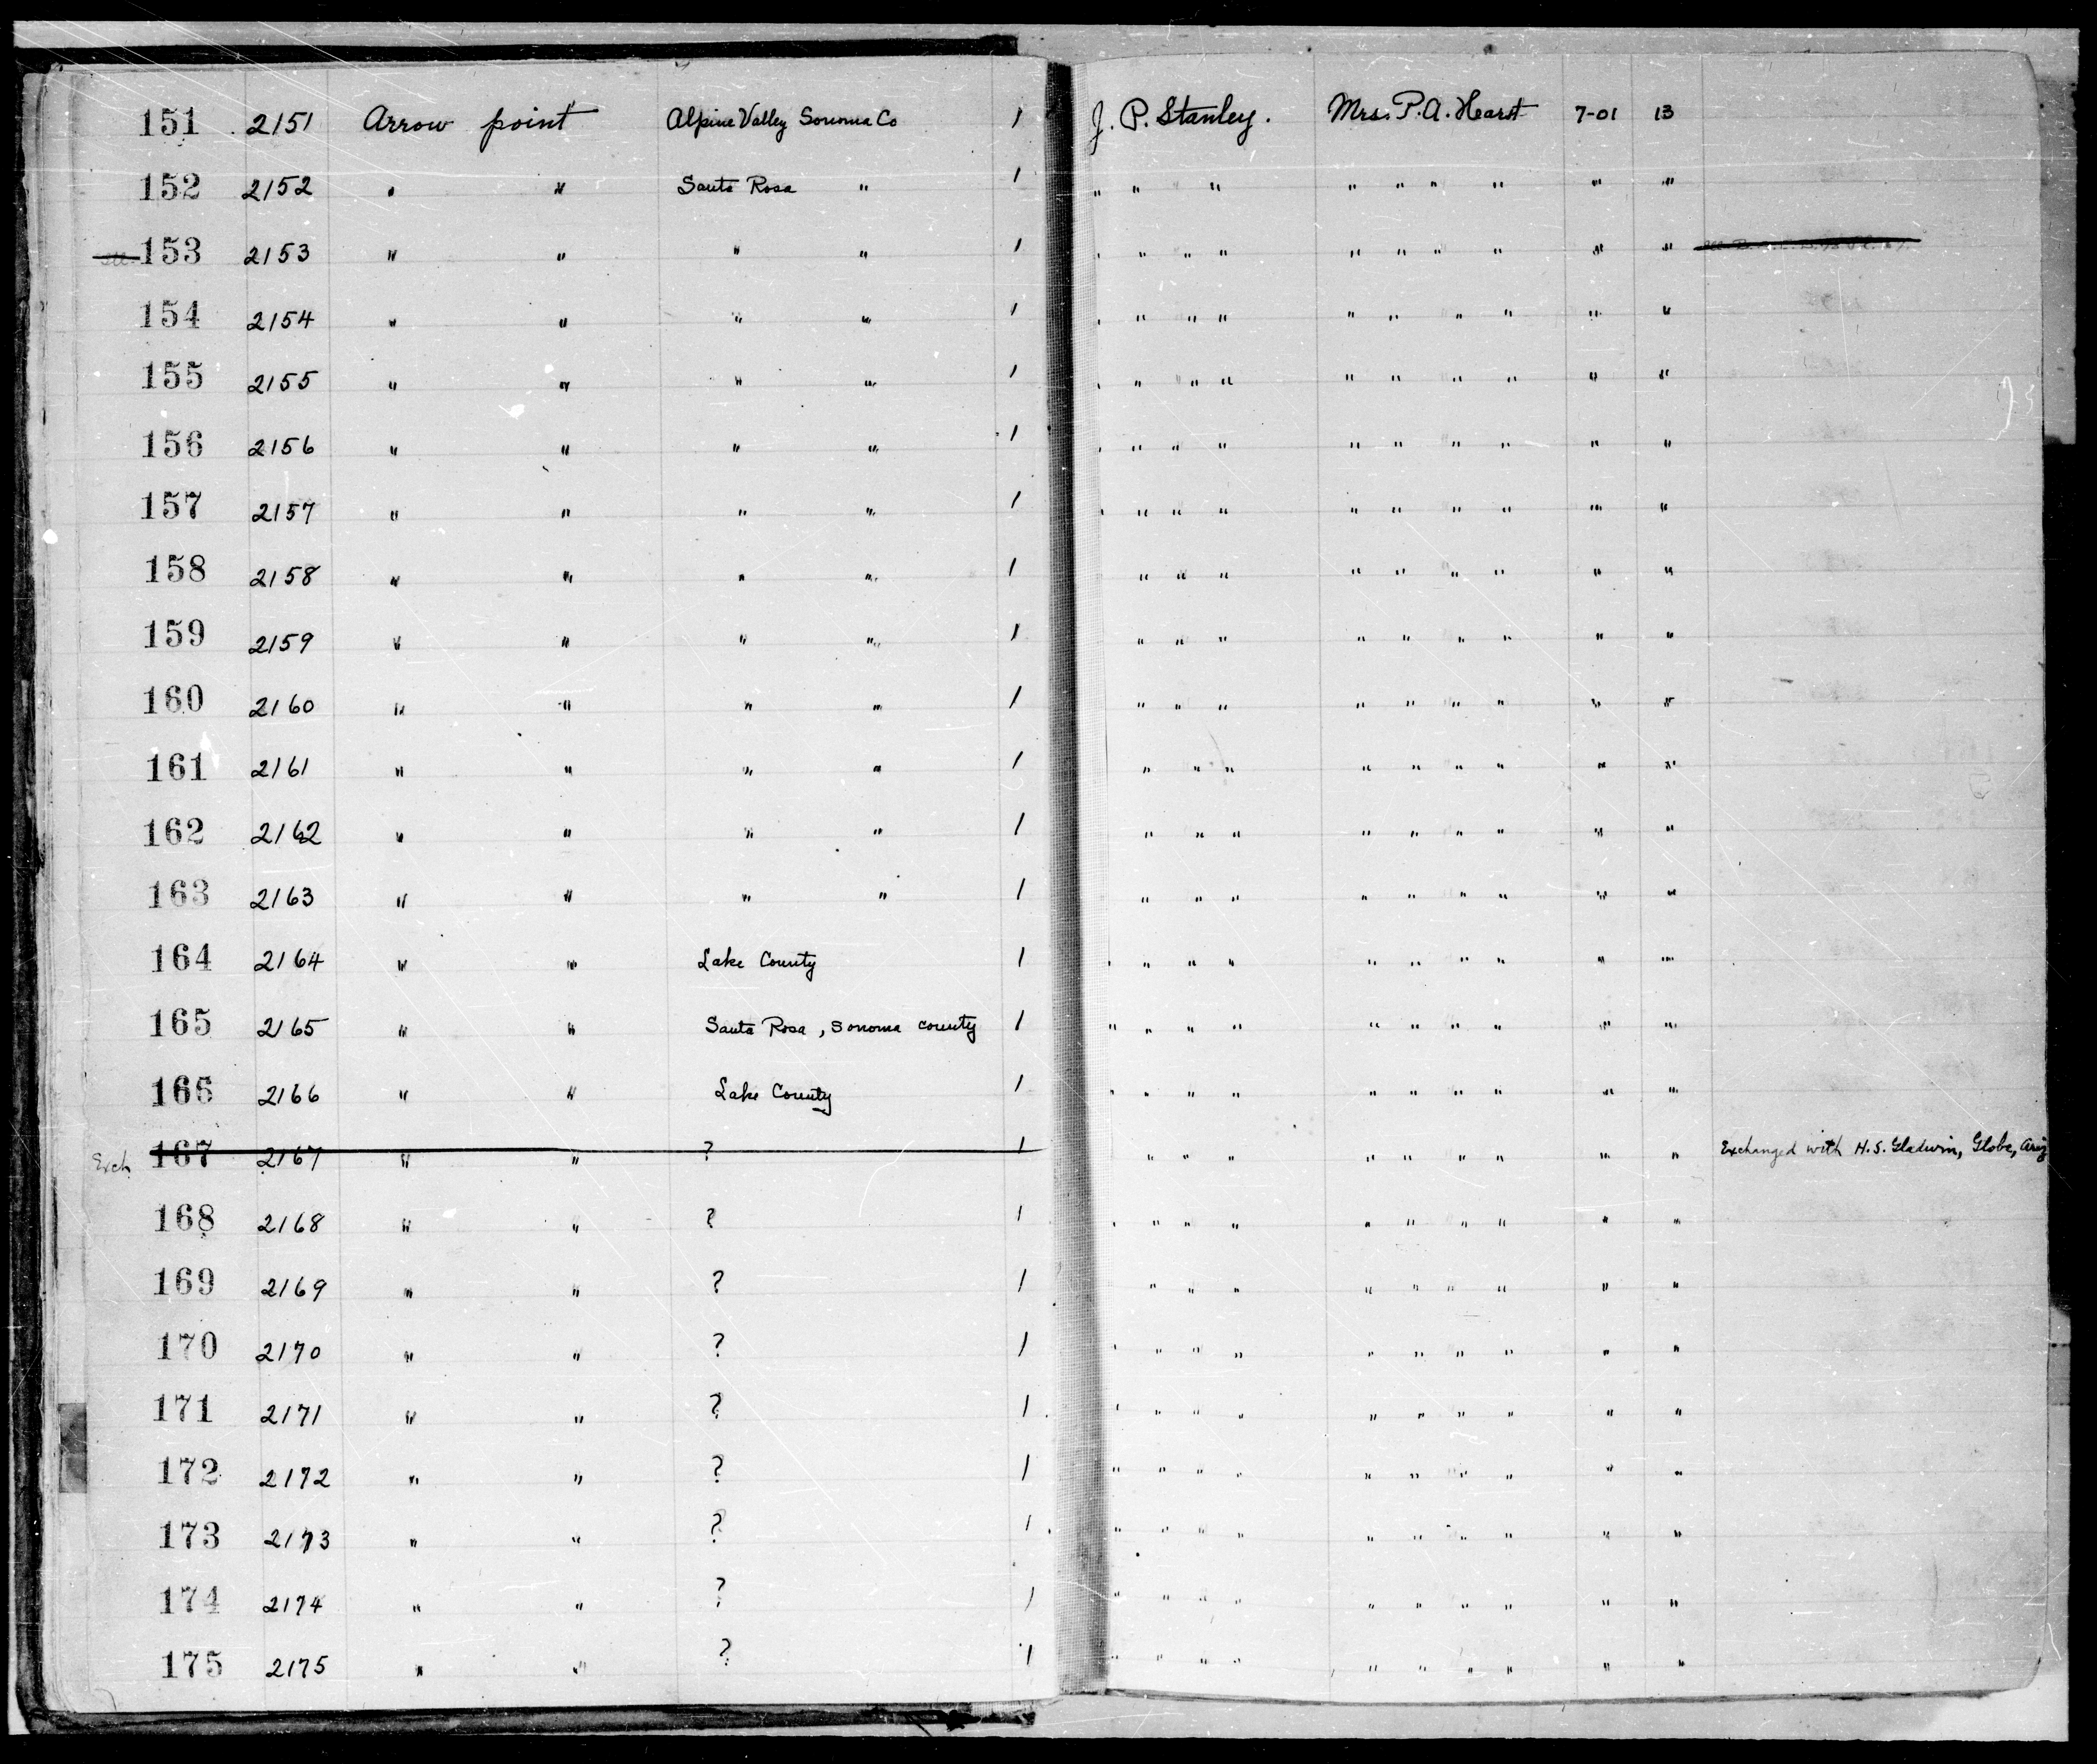 151 2151 Arrow point Alpine Valley Sonoma Co 1 J. P. Stanley. Mrs. P. A. Hearst 7-01 13
152 2152 " " Santa Rosa " 1 " " " " " " " " "
153 2153 " " " " 1 " " " " " " " " " "
154 2154 " " " " 1 " " " " " " " " " "
155 2155 " " " " 1 " " " " " " " " " "
156 2156 " " " " 1 " " " " " " " " " "
157 2157 " " " " 1 " " " " " " " " " "
158 2158 " " " " 1 " " " " " " " " "
159 2159 " " " " 1 " " " " " " " " "
160 2160 " " " " 1 " " " " " " " " "
161 2161 " " " " 1 " " " " " " " " "
162 2162 " " " " 1 " " " " " " " " "
163 2163 " " " " 1 " " " " " " " " "
164 2164 " " Lake County 1 " " " " " " " " " "
165 2165 " " Santa Rosa, Sonoma county 1 " " " " " " " " " "
166 2166 " " Lake County 1 " " " " " " " " " "
Exch 167 2167 " " ? 1 " " " " " " " " " Exchanged with H. S. Gladwin, Globe, Ariz
168 2168 " " ? 1 " " " " " " " " " "
169 2169 " " ? 1 " " " " " " " " "
170 2170 " " ? 1 " " " " " " " " " "
171 2171 " " ? 1 " " " " " " " " " "
172 2172 " " ? 1 " " " " " " " " " "
173 2173 " " ? 1 " " " " " " " " " "
174 2174 " " ? 1 " " " " " " " " " "
175 2175 " " ? 1 " " " " " " " " " "